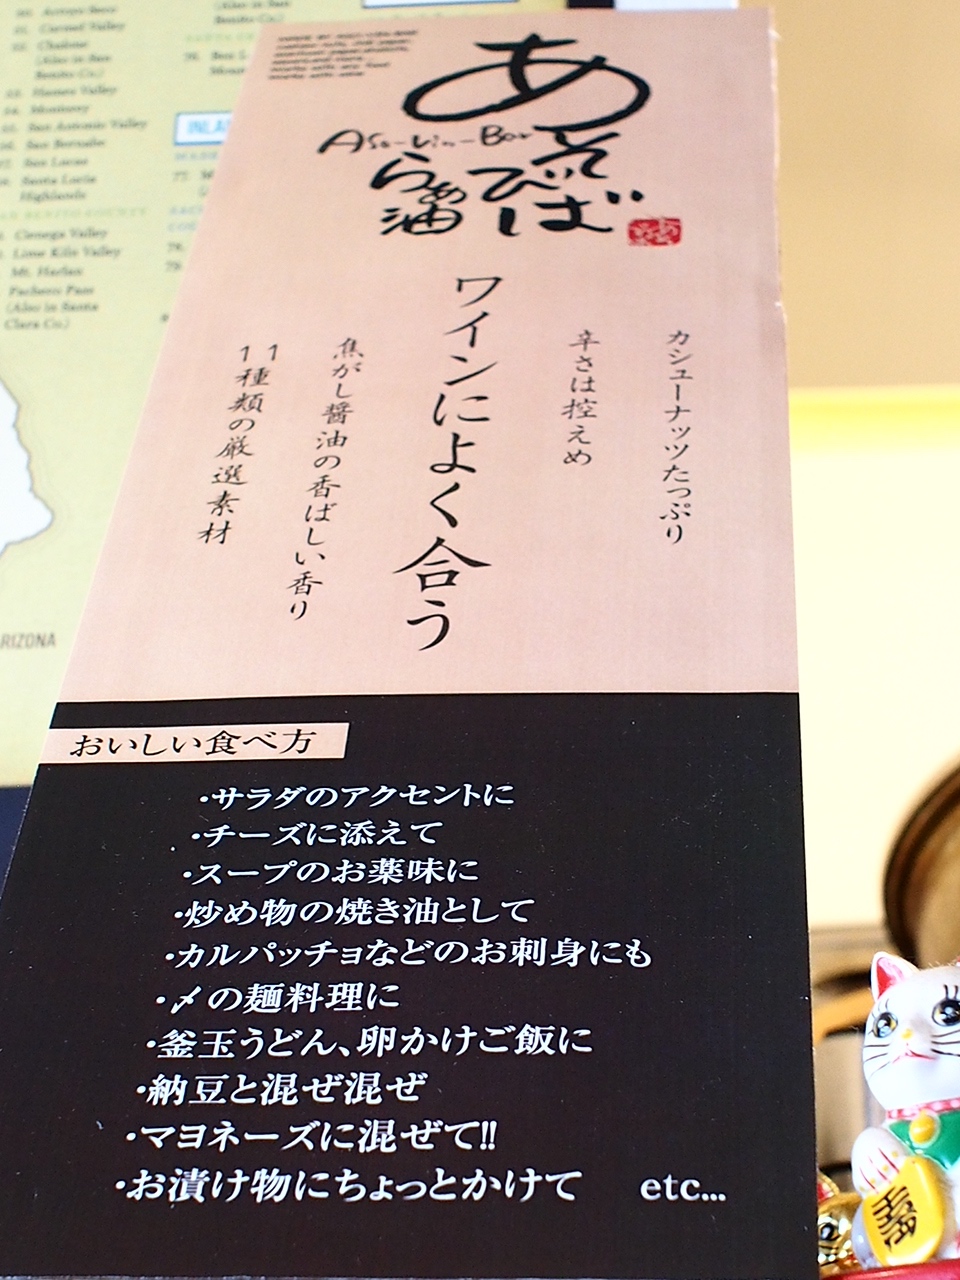 Arroyo Seco
Carmel Valley
Chalone
(Also in San
Benito Co.)
Hames Valley
Monterey
San Antonio Valley
San Bernabe
San Lucas
Santa Lucia
Highlands
Cienega Valley
Lime Kiln Valley
Mt. Harlan
Pacheco Pass
(Also in Santa
Clara Co.)
ARIZONA
あそびば
Aso-Vin-Bar
らぁ油
カシューナッツたっぷり
辛さは控えめ
ワインによく合う
焦がし醤油の香ばしい香り
11種類の厳選素材
おいしい食べ方
・サラダのアクセントに
・チーズに添えて
・スープのお薬味に
・炒め物の焼き油として
・カルパッチョなどのお刺身にも
・〆の麺料理に
・釜玉うどん、卵かけご飯に
・納豆と混ぜ混ぜ
・マヨネーズに混ぜて!!
・お漬け物にちょっとかけて etc...